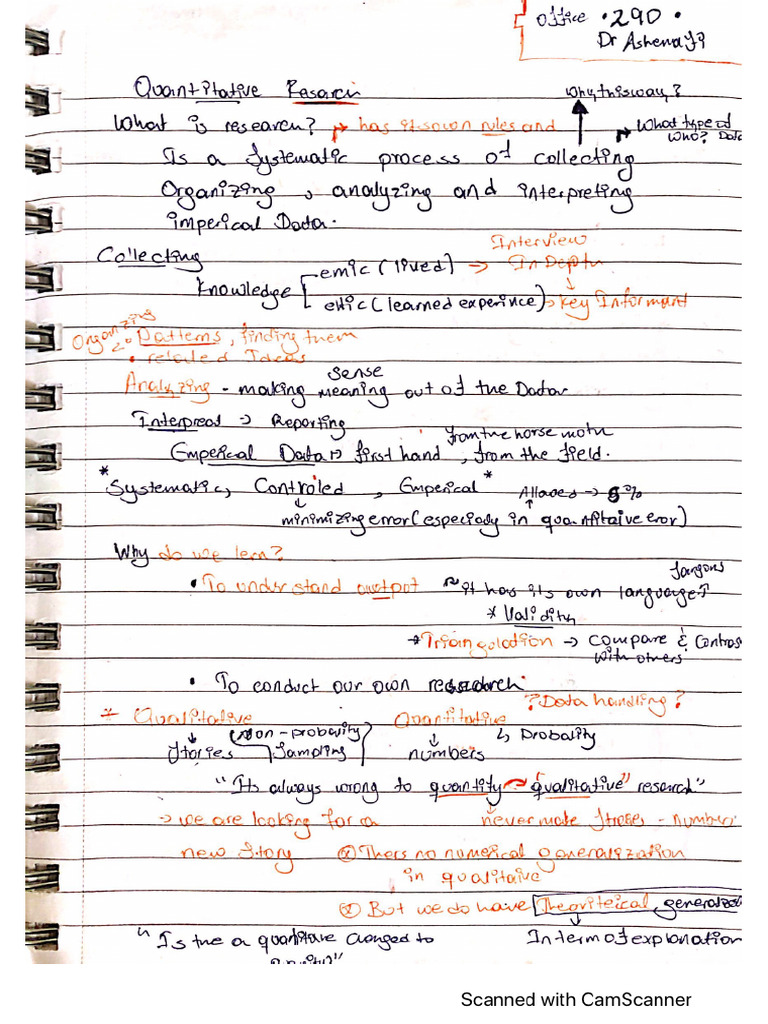 Office • 290 •
Dr Ashenafi
Quantitative Research
Why this way?
What is research? has its own rules and
What type of Data
Who?
Is a Systematic process of collecting
Organizing, analyzing and interpreting
imperical Data.
Collecting
Interview
Knowledge
emic (lived) → In Depth
etic (learned experince) → Key Informant
Organizing
Patterns, finding them
• related Ideas
Analyzing - making sense meaning out of the Data
Interpreat → Reporting
from the horse moth
Emperical Data → first hand, from the field.
* Systematic, Controled, Emperical *
Allowed → 5%
minimizing error (especiely in quantitaive eror)
Why do we lern?
• To understand output ~ it has its own language
Jargons
* Validity
→ Triangolation → compare & Contras
with others
• To conduct our own research
? Data handling ?
* Qualitative Quantitative
non-probabity Sampling
↳ Probality
Stories numbers
"Its always wrong to quantify "qualitative" research"
→ we are looking for a
new story
never make stroies - number
⊗ Thers no numerical generalization
in qualitaive
⊗ But we do have Theoriteical generaliz
Interm of explonation
" Is the a quantitave changed to